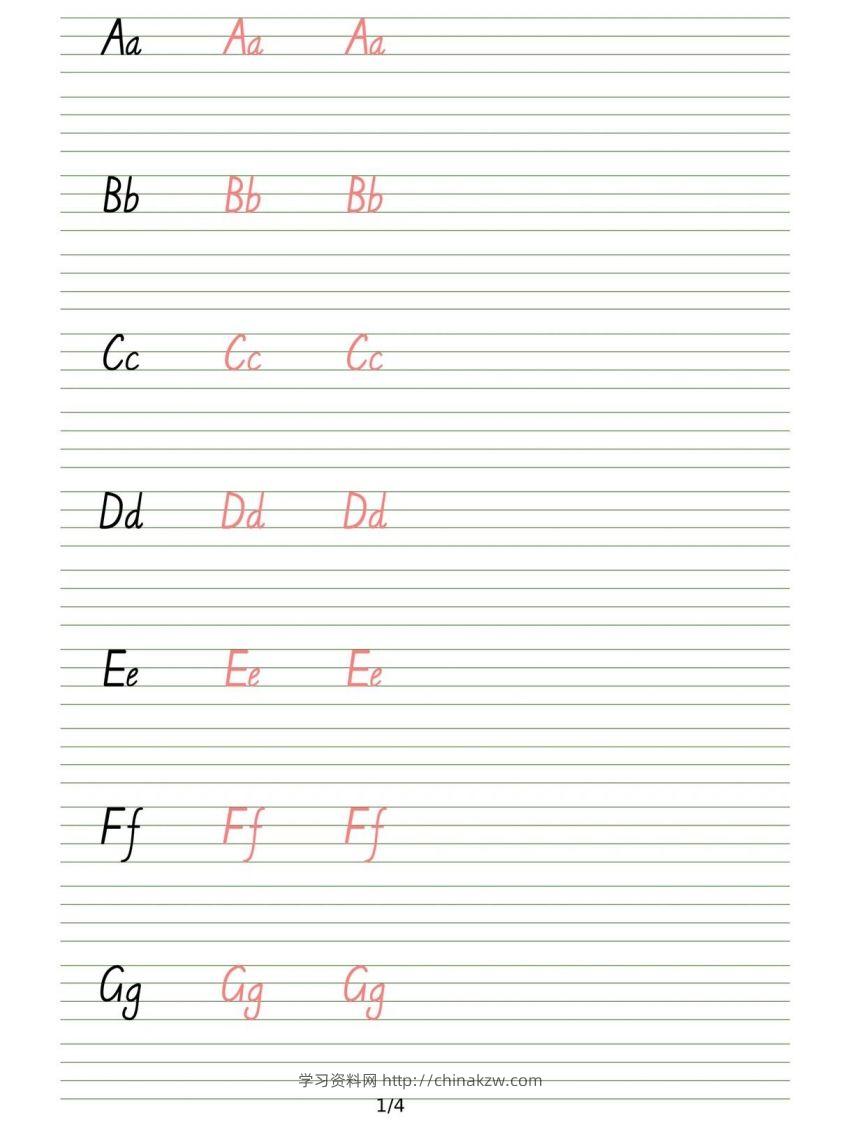 Aa Aa Aa
Bb Bb Bb
Cc Cc Cc
Dd Dd Dd
Ee Ee Ee
Ff Ff Ff
Gg Gg Gg
学习资料网 http://chinakzw.com
1/4